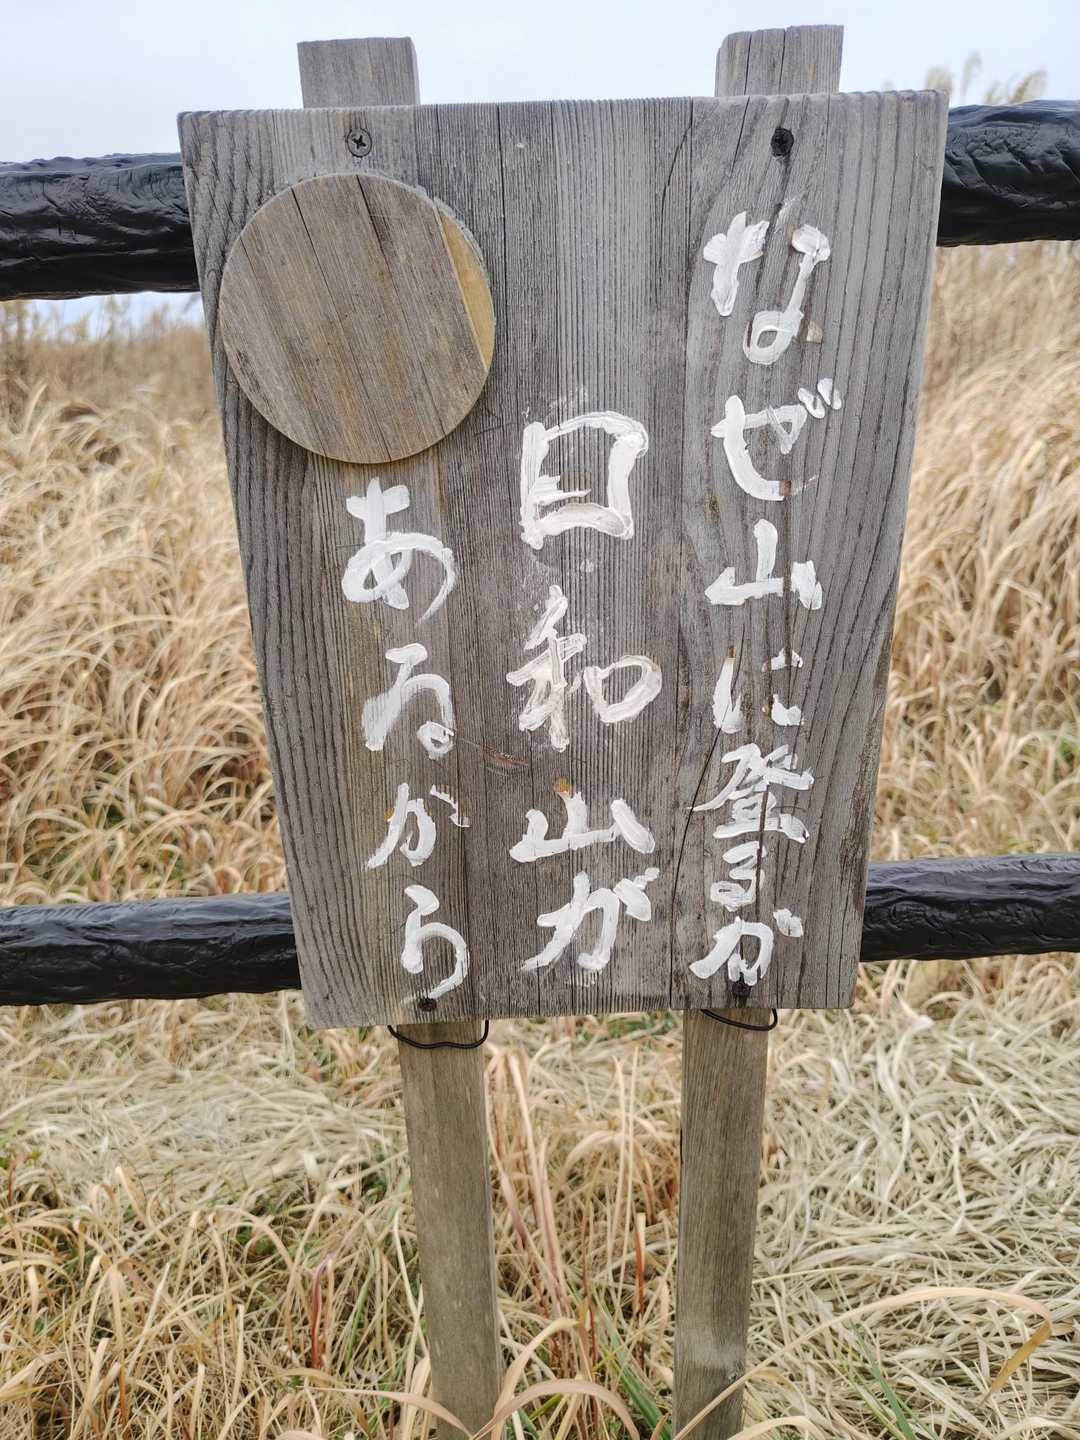 なぜ山に登るか
日和山が
あるから